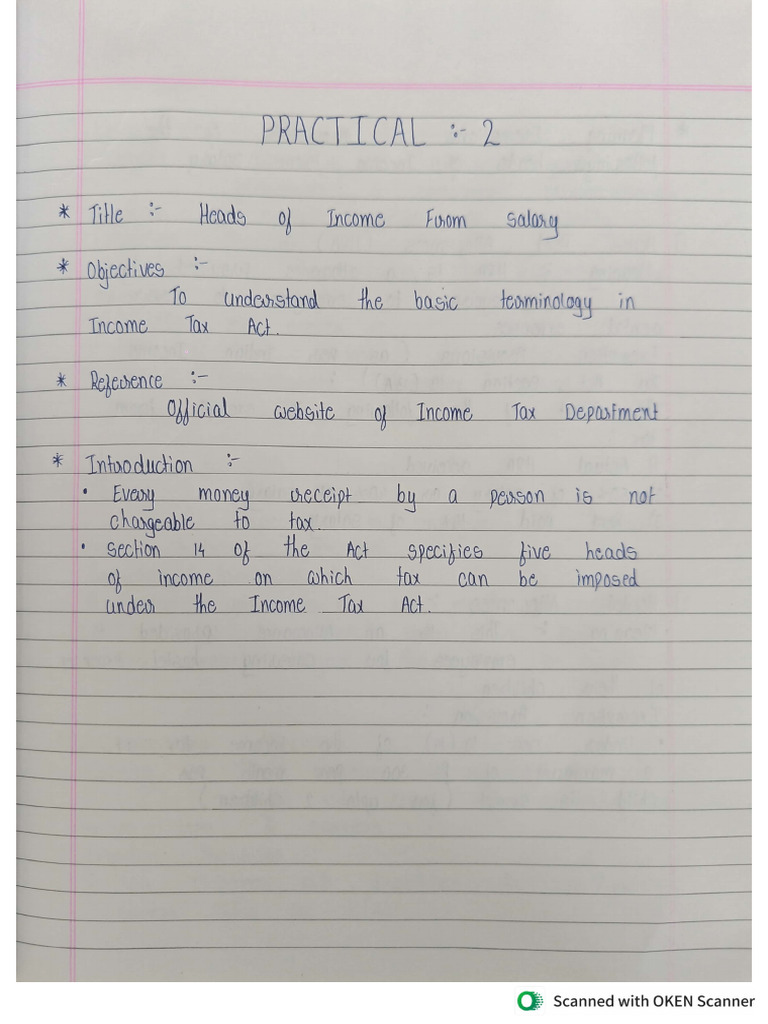 PRACTICAL :- 2
* Title :- Heads of Income From Salary
* Objectives :-
To understand the basic terminology in
Income Tax Act.
* Reference :-
Official website of Income Tax Department
* Introduction :-
• Every money receipt by a person is not
chargeable to tax.
• Section 14 of the Act specifies five heads
of income on which tax can be imposed
under the Income Tax Act.
Scanned with OKEN Scanner